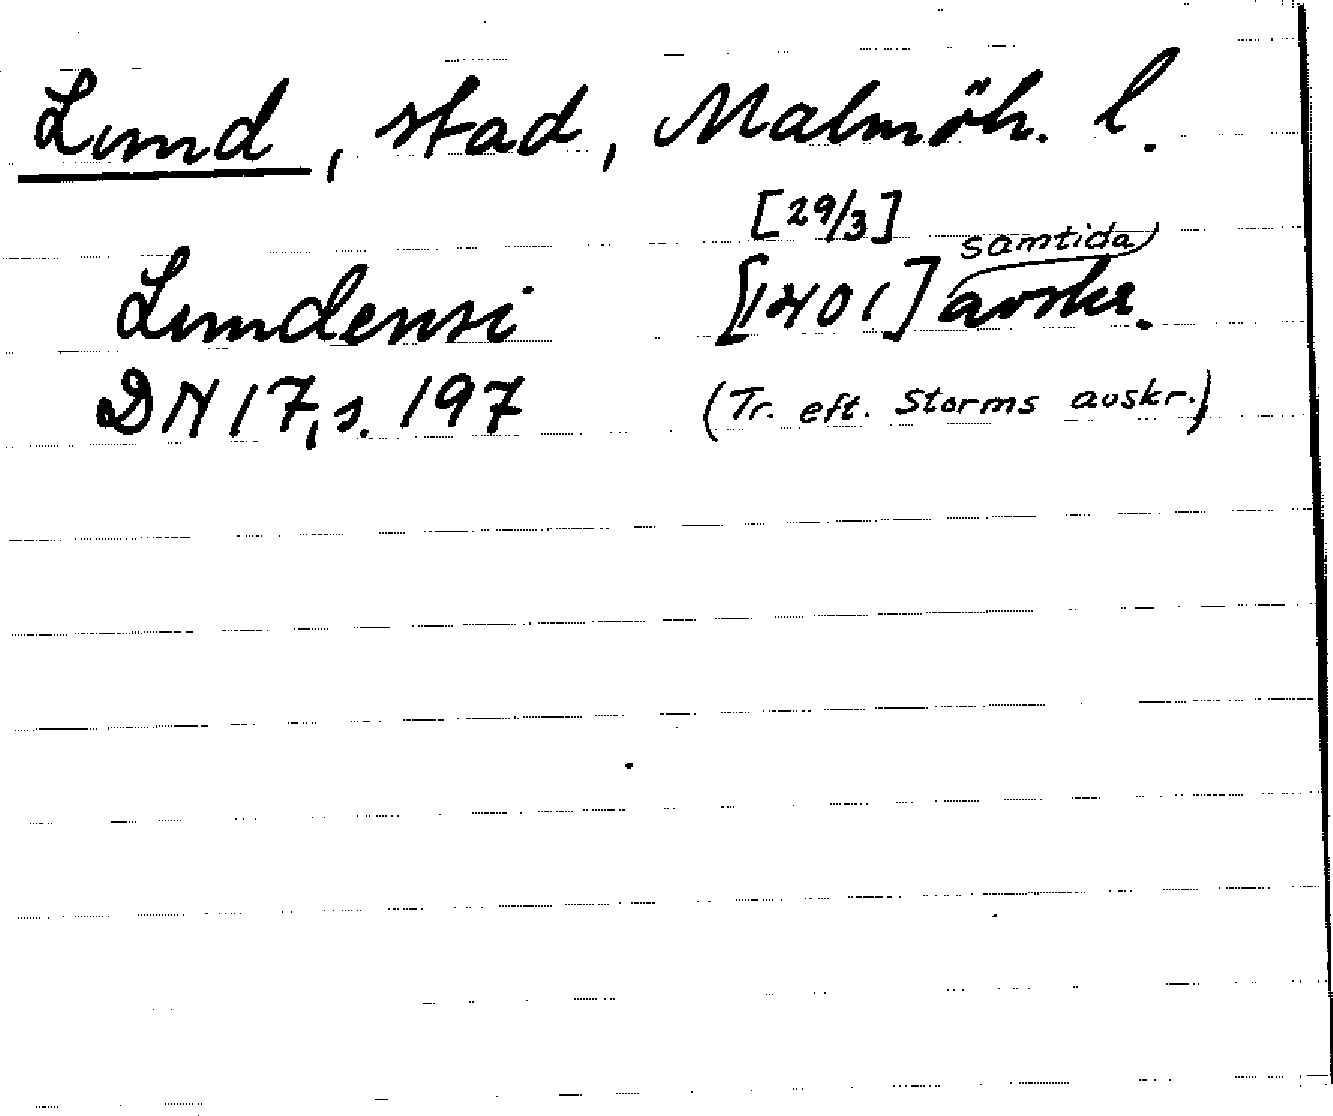 Lund, stad, Malmöh. l.
[29/3]
Lundensi [1401] samtida avskr.
DN 17, s. 197 (Tr. eft. Storms avskr.)